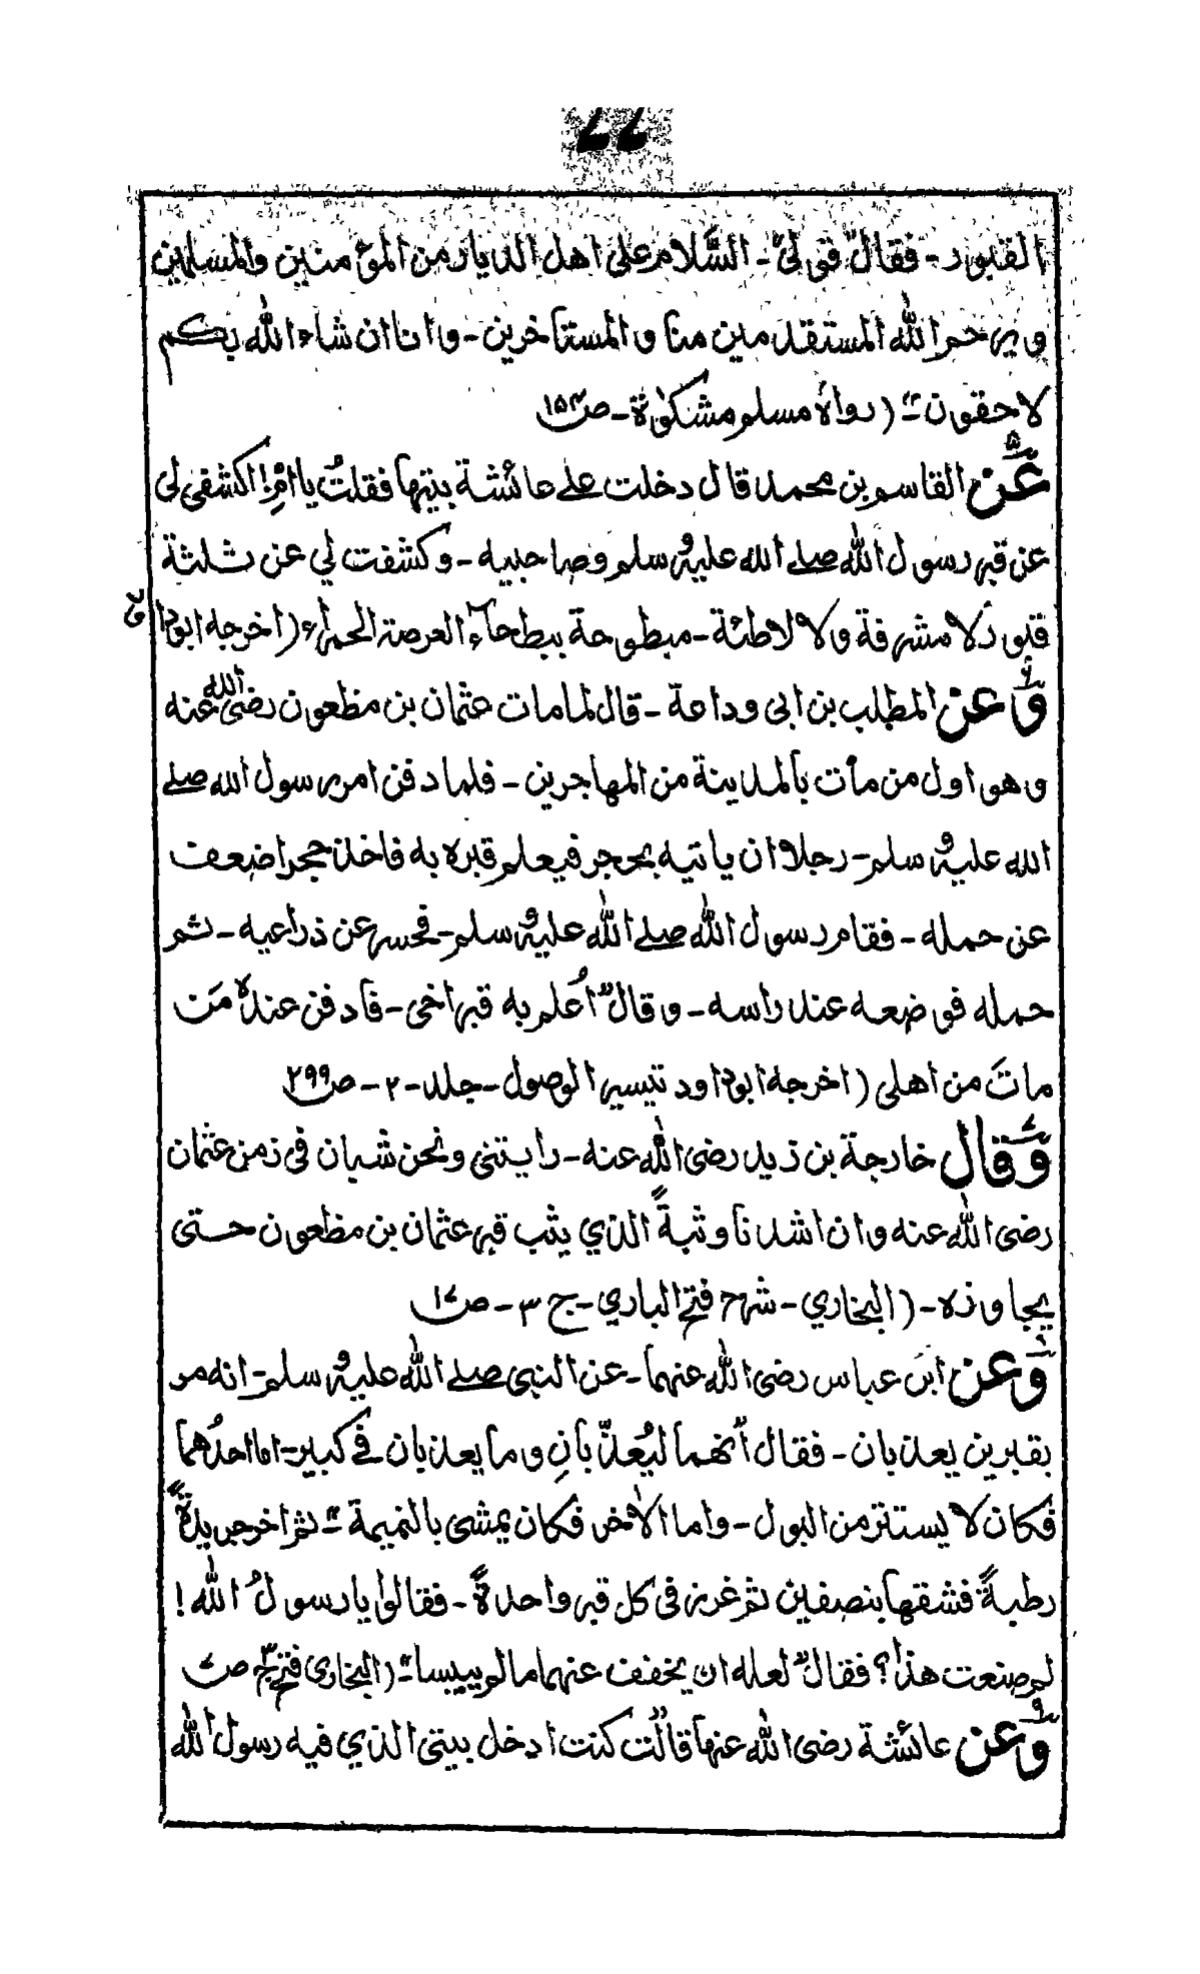 ٧٧
القبور۔ فقال قولی۔ السَّلام علی اهل الديار من المؤمنين والمسلمين
ويرحم الله المستقدمين منا والمستاخرين۔ وانا ان شاء الله بكم
لاحقون" (رواه مسلم مشكوٰة۔ ص۱۵۴
۵ عَنْ القاسم بن محمد قال دخلت علے عائشة بيتها فقلتُ يا امِّ! اكشفی لی
عن قبر رسول الله صلے الله عليه وسلم وصاحبيه۔ وكشفت لي عن ثلثة
قبور لا مشرفة ولا لاطئة۔ مبطوحة ببطحاء العرصة الحمراء (اخرجه ابوداؤد
۶ وَعن المطلب بن ابی وداعة۔ قال لما مات عثمان بن مظعون رضی الله عنه
وهو اول من مات بالمدينة من المهاجرين۔ فلما دفن امر رسول الله صلے
الله عليه وسلم۔ رجلا ان ياتيه بحجر فيعلم قبره به فاخذ حجرا ضعف
عن حمله۔ فقام رسول الله صلے الله عليه وسلم۔ فحسر عن ذراعيه۔ ثم
حمله فوضعه عند راسه۔ وقال" اُعلم به قبر اخی۔ فادفن عنده مَن
ماتَ من اهلی (اخرجه ابوداود تيسير الوصول۔ جلد۔۲۔ ص۲۹۹
۷ وَقال خارجة بن زيد رضی الله عنه۔ رايتنی ونحن شبان فی زمن عثمان
رضی الله عنه وان اشدنا وثبةً الذي يثب قبر عثمان بن مظعون حتی
يجاوزه۔ (البخاري۔ شرح فتح الباري۔ ج ۳۔ ص۱۷
۸ وَعن ابن عباس رضی الله عنهما۔ عن النبی صلے الله عليه وسلم۔ انه مر
بقبرين يعذبان۔ فقال "انهما ليُعذَّبانِ وما يعذبان فے كبير۔ اما احدُهما
فكان لا يستتر من البول۔ واما الاٰخر فكان يمشی بالنميمة"۔ ثم اخر جريدةً
رطبةً فشقها بنصفين ثم غرز فی كل قبر واحدةً۔ فقالوا يا رسولُ الله!
لم صنعت هذا؟ فقال" لعله ان يخفف عنهما مالم ييبسا"۔ (البخاری فتح ج۳ ص۷
۹ وَعن عائشة رضی الله عنها قالت" كنت ادخل بيتی الذي فيه رسول الله